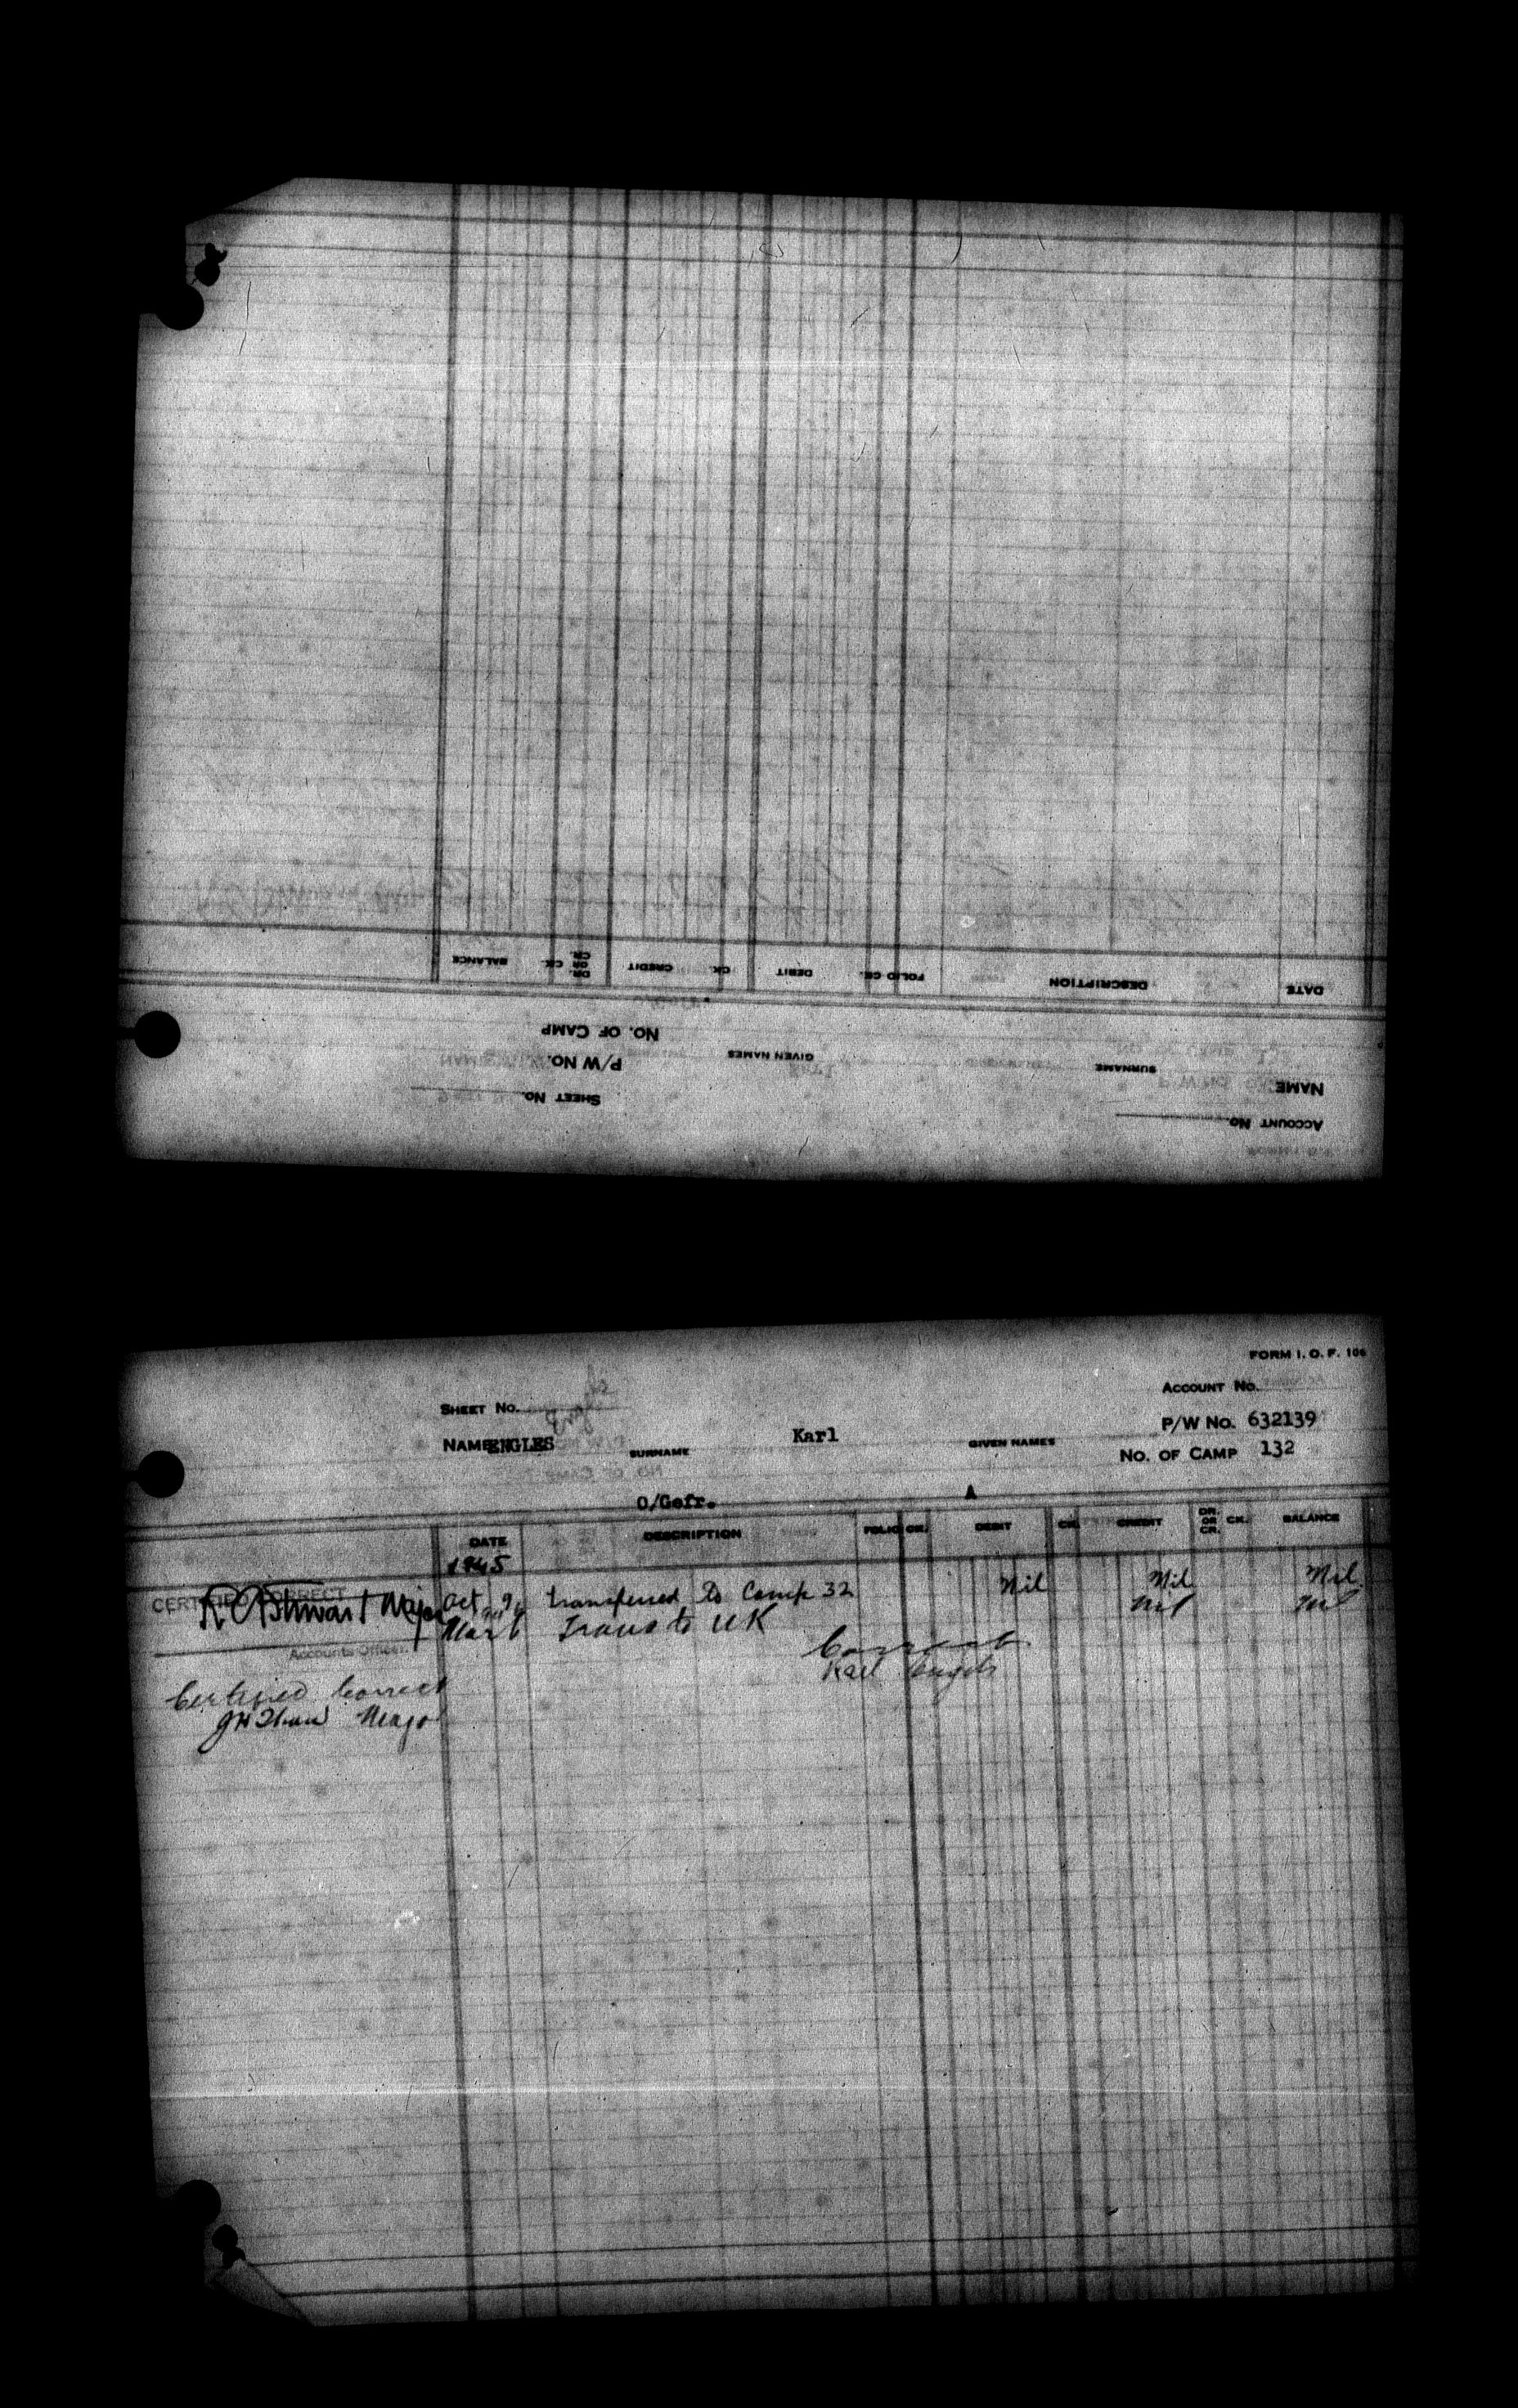 DATE
DESCRIPTION
FOLIO CK.
DEBIT
CK.
CREDIT
DR. OR CR.
CK.
BALANCE
NAME
SURNAME
GIVEN NAMES
NO. OF CAMP
P/W NO.
ACCOUNT NO.
SHEET NO.
FORM I. O. F. 106
SHEET NO.
ACCOUNT NO.
NAME ENGLES SURNAME Karl GIVEN NAMES
P/W NO. 632139
NO. OF CAMP 132
O/Gefr. A
DATE DESCRIPTION FOLIO CK. DEBIT CK. CREDIT DR. OR CR. CK. BALANCE
1945
CERTIFIED CORRECT
Major Oct 9 transferred to Camp 32 Nil Nil Nil
Mar Trans to UK Nil Nil
Accounts Officer
Correct
Karl Engels
Certified Correct
Major